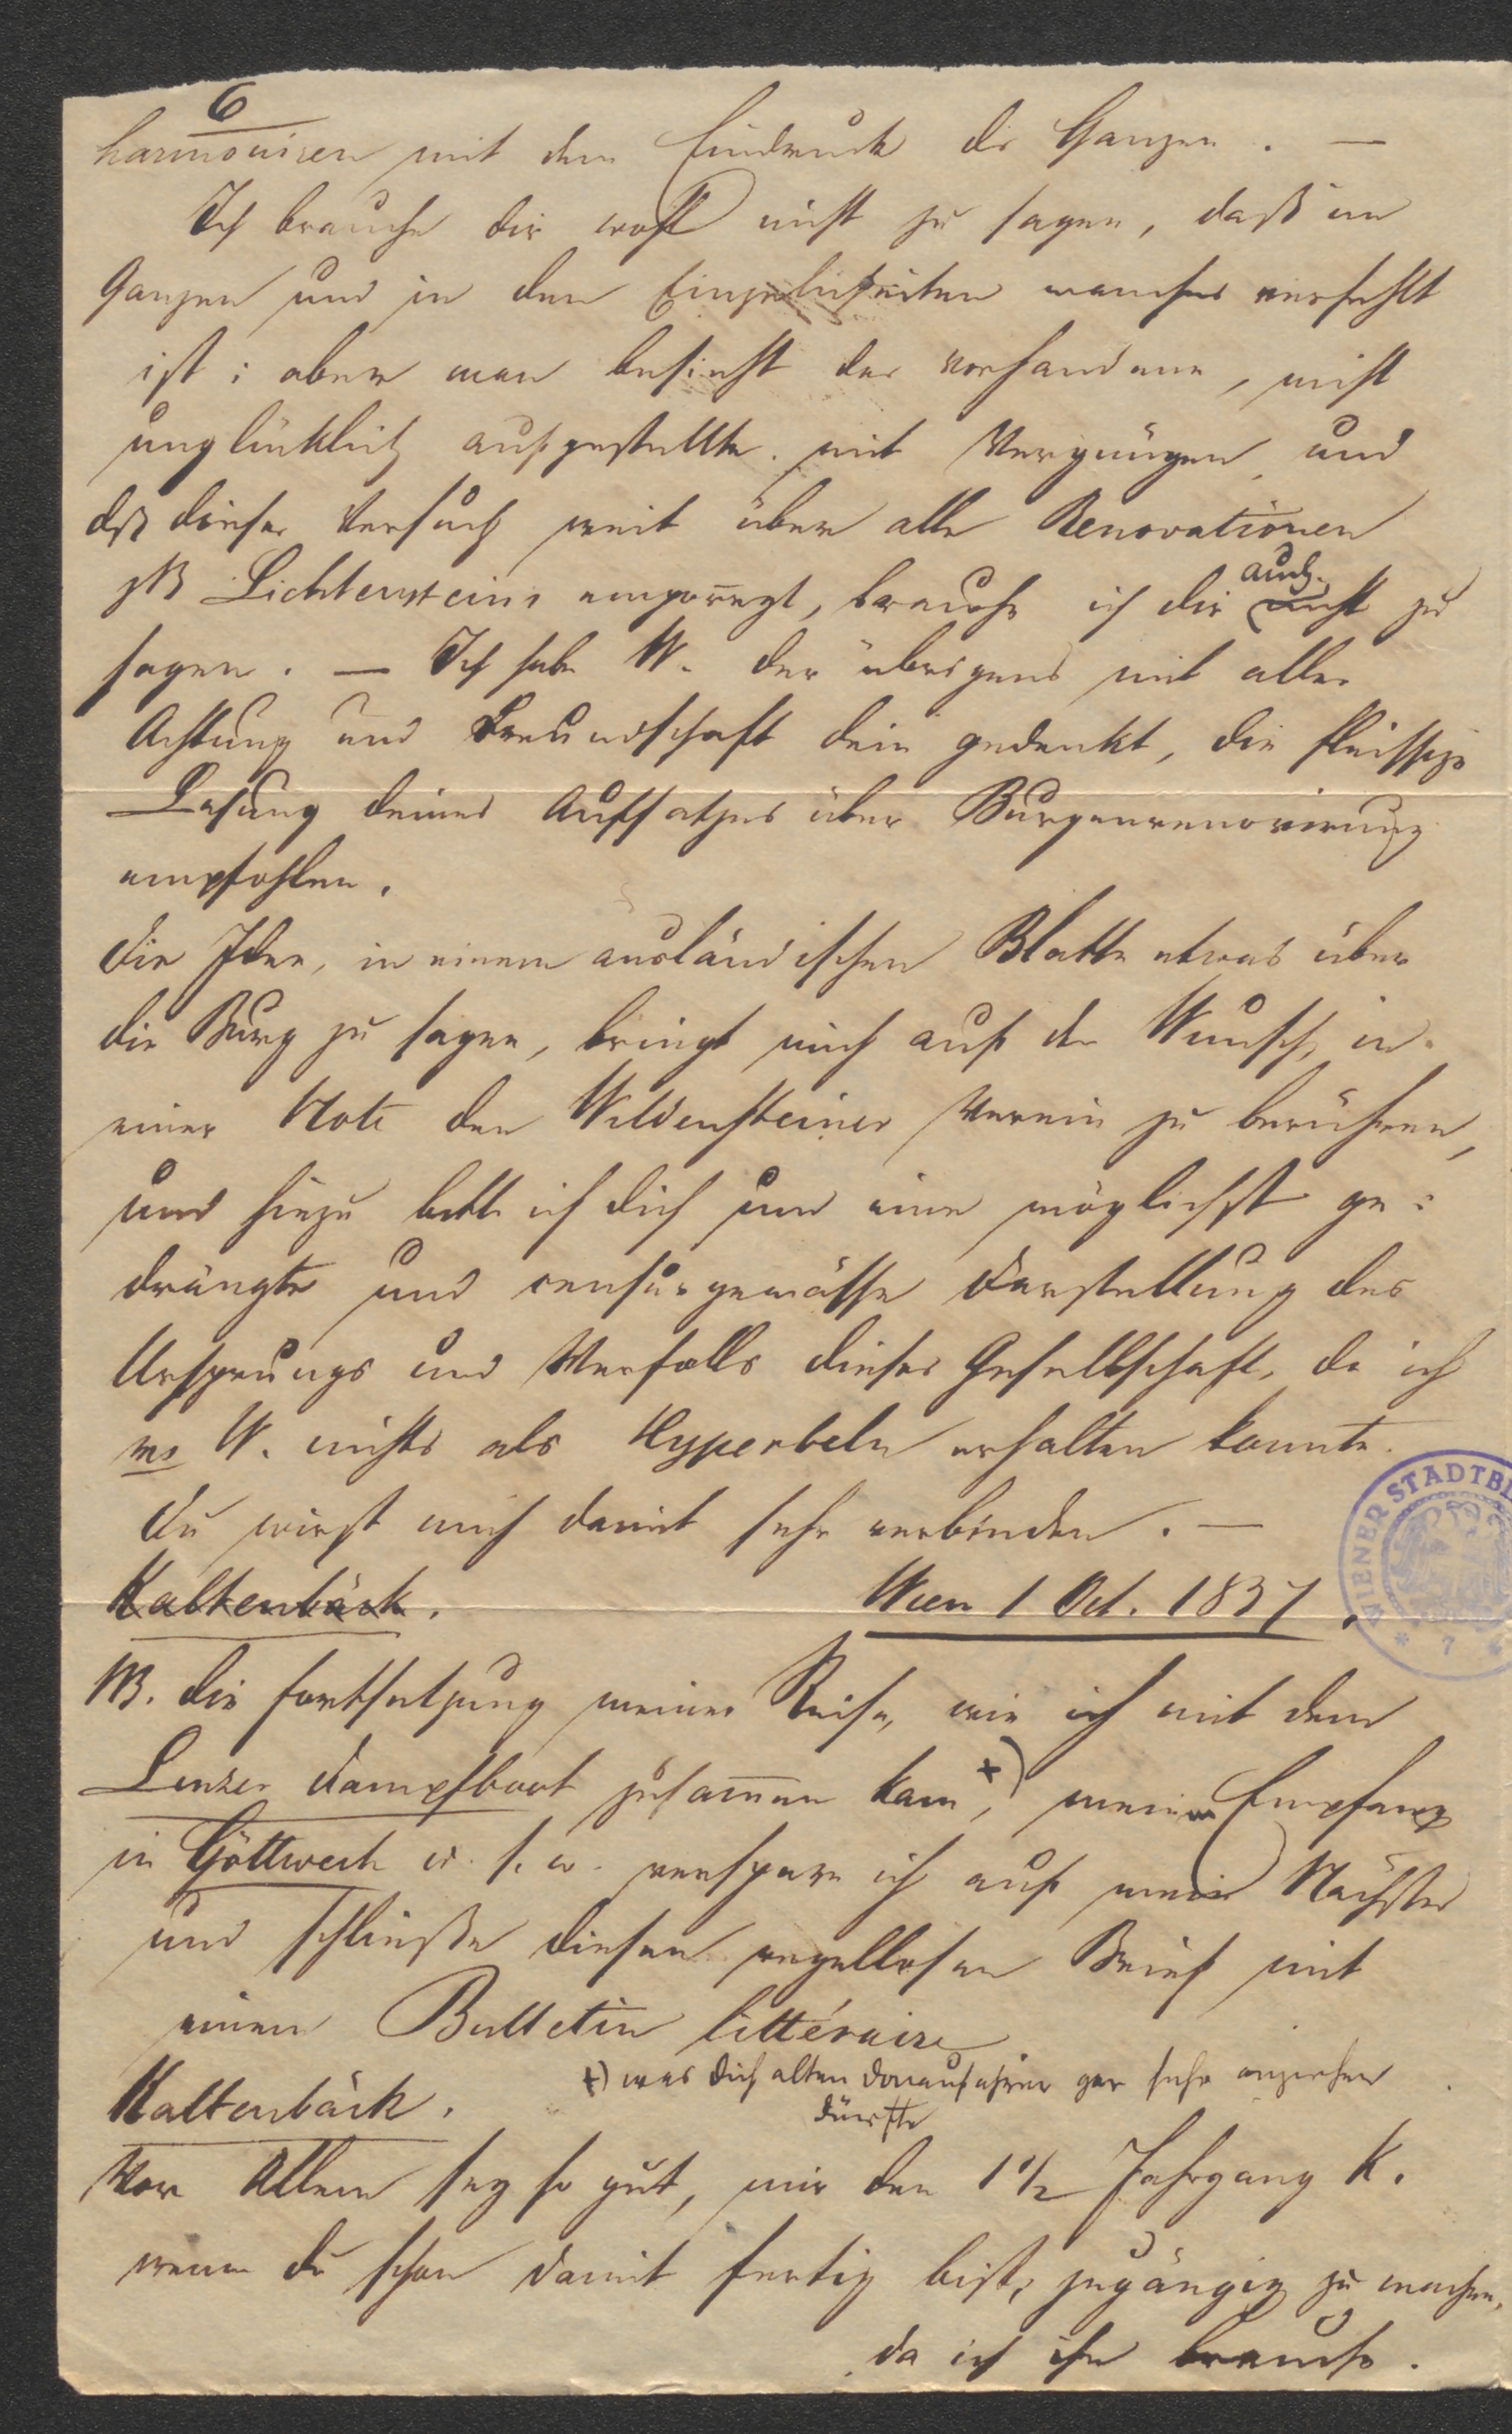 6
harmoniren mit dem Eindruck des Ganzen. —
Ich brauche dir wohl nicht zu sagen, daß im
Ganzen und in den Einzelnheiten manches verfehlt
ist; aber man besieht das vorhandene, nicht
unglücklich aufgestellte mit Vergnügen und
dß dieser Versuch weit über alle Renovationen
zB Lichtensteins emporragt, brauche ich dir auch nicht zu
sagen. — Ich habe W. der übrigens mit aller
Achtung und Freundschaft dein gedenkt, die fleissige
Lesung deines Aufsatzes über Burgenrenovirung
empfohlen.
Die Idee, in einem ausländischen Blatte etwas über
die Burg zu sagen, bringt mich auf den Wunsch, in
einer Note den Wildensteiner Verein zu berühren,
und hiezu bitte ich dich um eine möglichst ge=
drängte und censurgemässe Darstellung des
Ursprungs und Verfalls dieser Gesellschaft, da ich
von W. nichts als Hyperbeln erhalten konnte.
Du wirst mich damit sehr verbinden. —
Kaltenbäck. Wien 1 Oct. 1837.
NB. Die Fortsetzung meiner Reise, wie ich mit dem
Linzer Dampfboot zusammen kam, +) meinen Empfang
in Göttweih u. s. w. verspare ich auf mein Nächstes
und schließe diesen regellosen Brief mit
einem Bulletin littéraire
+) was dich alten Donaufahrer gar sehr anziehen
dürfte
Kaltenbäck.
Vor Allem sey so gut, mir den 1 1/2 Jahrgang K.
wenn du schon damit fertig bist, zugängig zu machen,
da ich ihn brauche.
WIENER STADTBI
* 7